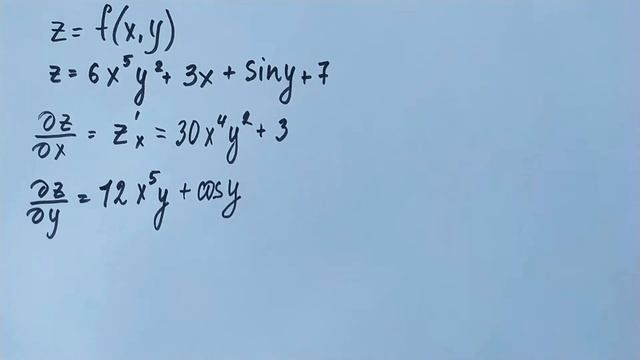 z = f(x,y)
z = 6x⁵y² + 3x + siny + 7
∂z/∂x = z'ₓ = 30x⁴y² + 3
∂z/∂y = 12x⁵y + cosy